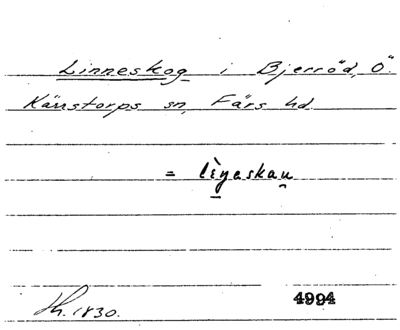 Linneskog i Bjerröd, Ö.
Kärrstorps sn, Färs hd.
= lìŋeskau̯
Th. 1830.
4994